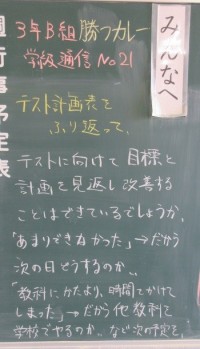 みんなへ
週行事予定表
3年B組 勝つカレー
学級通信 No21
テスト計画表を
ふり返って、
テストに向けて目標と
計画を見返し改善する
ことはできているでしょうか。
「あまりできなかった」→だから
次の日どうするのか…
「教科にかたより、時間をかけて
しまった」→だから他教科を
学校でやるのか…など次の予定を、